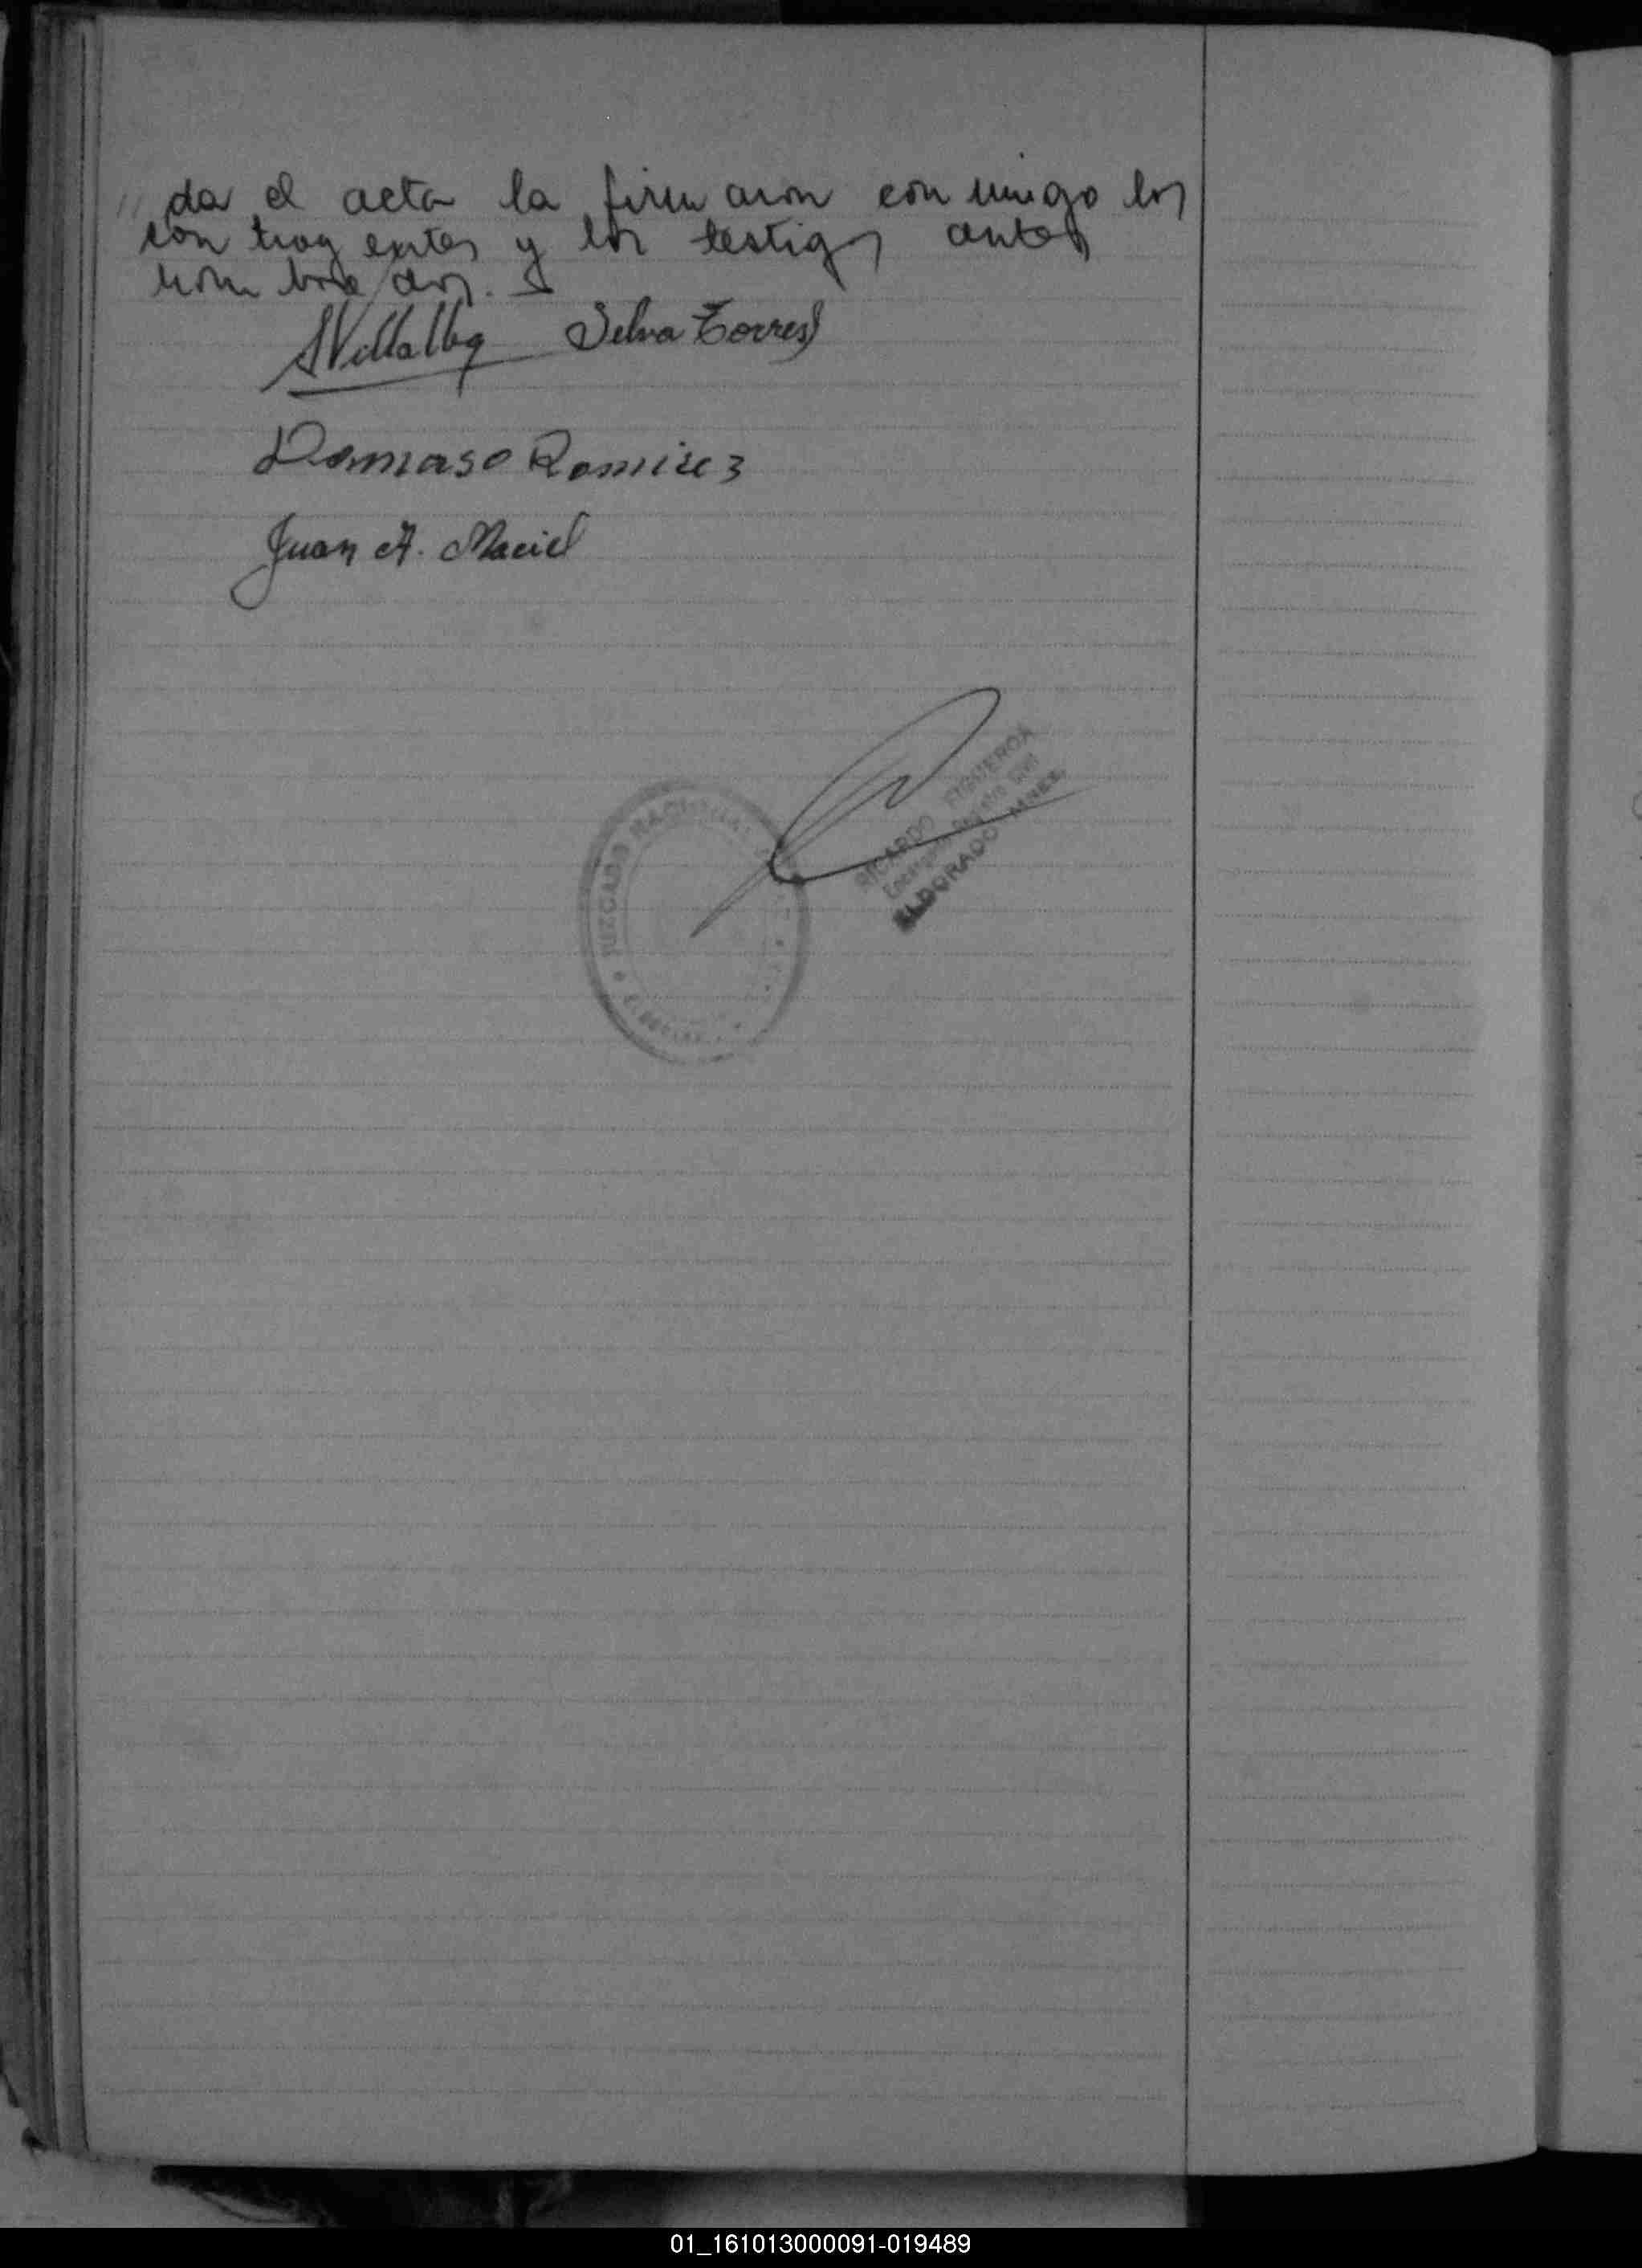 // da el acta la firmaron conmigo los
contrayentes y los testigos antes
nombrados.
AVillalba Selva Torres
Damaso Ramirez
Juan A. Maciel
JUZGADO NACIONAL
RICARDO FIGUEROA
Encargado Registro Civil
ELDORADO MNES.
01_161013000091-019489